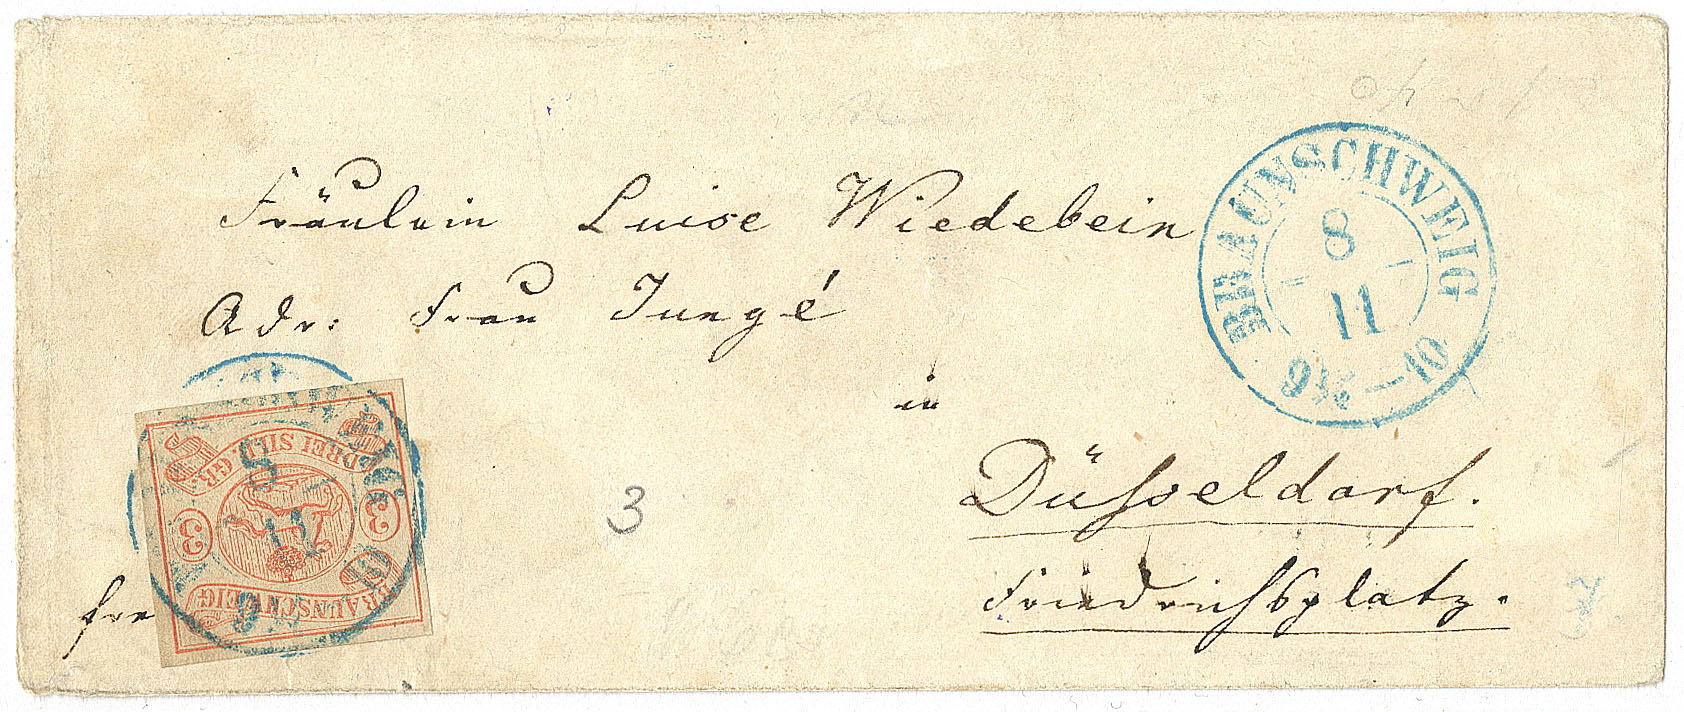 Fräulein Luise Wiedebein
Adr: Frau Jungé
in
Düsseldorf.
Friedrichsplatz.
BRAUNSCHWEIG
8
11
9½-10
3
fr
DREI SILB. GR.
3 3
BRAUNSCHWEIG
8
11
9½ 10